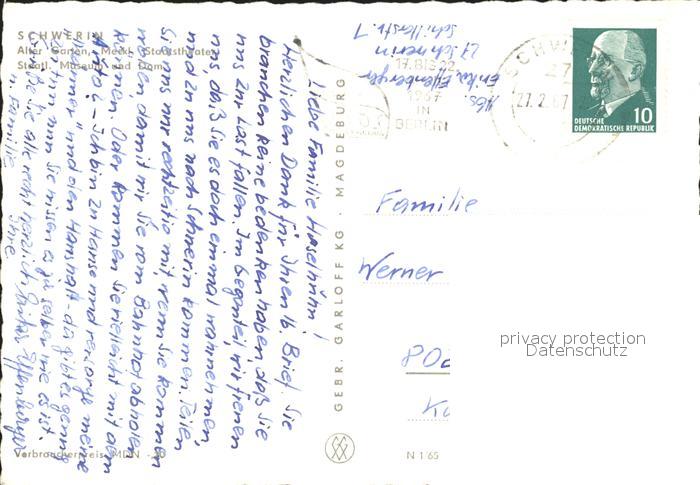 SCHWERIN
Alter Garten, Meckl. Staatstheater,
Staatl. Museum und Dom
Liebe Familie
Herzlichen Dank für Ihren lb. Brief. Sie
brauchen keine Bedenken haben, daß Sie
uns zur Last fallen. Im Gegenteil, wir freuen
uns, daß Sie es doch einmal wahrnehmen,
und zu uns nach Schwerin kommen. Teilen
Sie uns nur rechtzeitig mit wenn Sie kommen
damit wir Sie vom Bahnhof abholen
können. Oder kommen Sie vielleicht mit dem
Auto? - Ich bin zu Hause und versorge meine
und den Haushalt - da gibt es genug
zu tun, Sie wissen es ja selber wie es ist.
Sie alle recht herzlich
Familie Ihre
Verbraucherpreis MDN -,20
GEBR. GARLOFF KG · MAGDEBURG
Abs.
Erika Effenberger
27 Schwerin
Schillerstr. 7
17. BIS 22.
1967
IN
BERLIN
SCHWERIN
27
27.2.67
10
DEUTSCHE
DEMOKRATISCHE REPUBLIK
Familie
Werner
802
N 1/65
privacy protection
Datenschutz